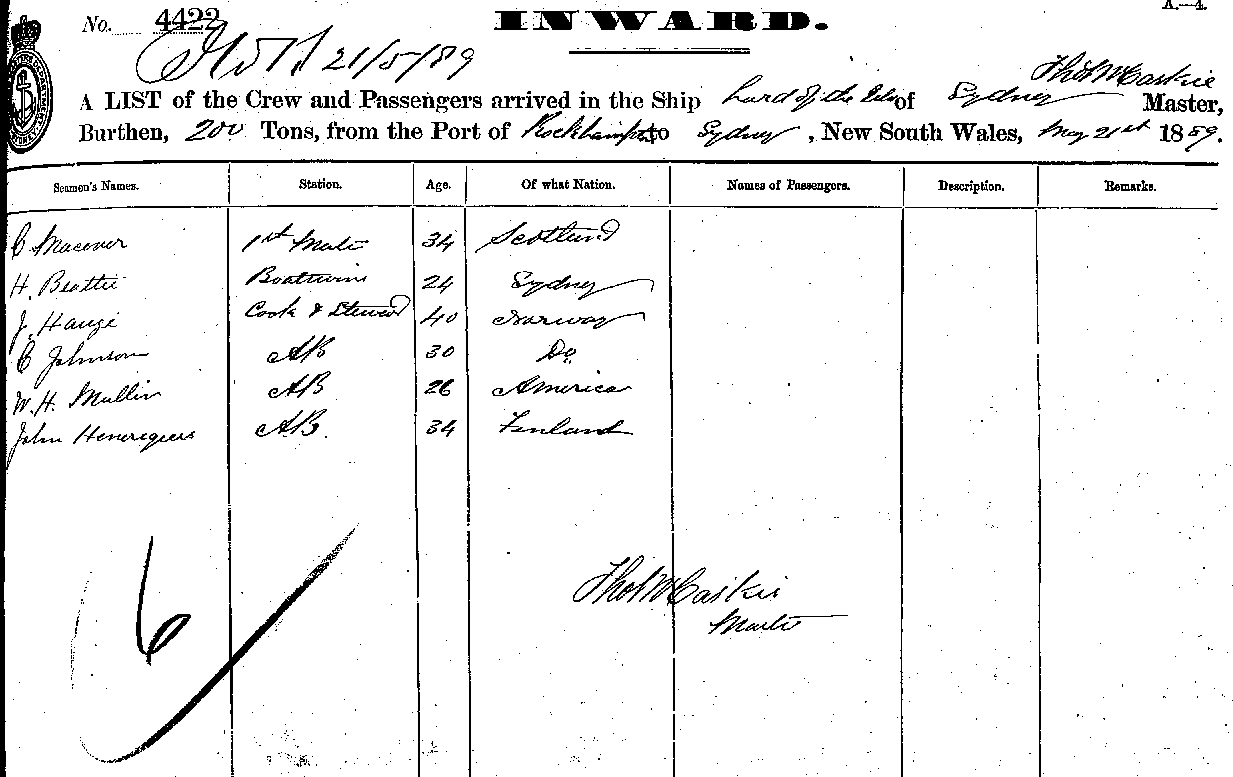 A.—4.
No. 4422 INWARD.
21/5/89
Thos McCaskie
A LIST of the Crew and Passengers arrived in the Ship Lord of the Isles of Sydney Master,
Burthen, 200 Tons, from the Port of Rockhampto to Sydney, New South Wales, May 21st 1889.
Seamen's Names. Station. Age. Of what Nation. Names of Passengers. Description. Remarks.
C Macever 1st Mate 34 Scotland
H. Beattie Boatswin 24 Sydney
J. Hauge Cook & Steward 40 Norway
C Johnson AB 30 Do
W. H. Mullin AB 26 America
John AB. 34 Finland
6
Thos McCaskie
Master